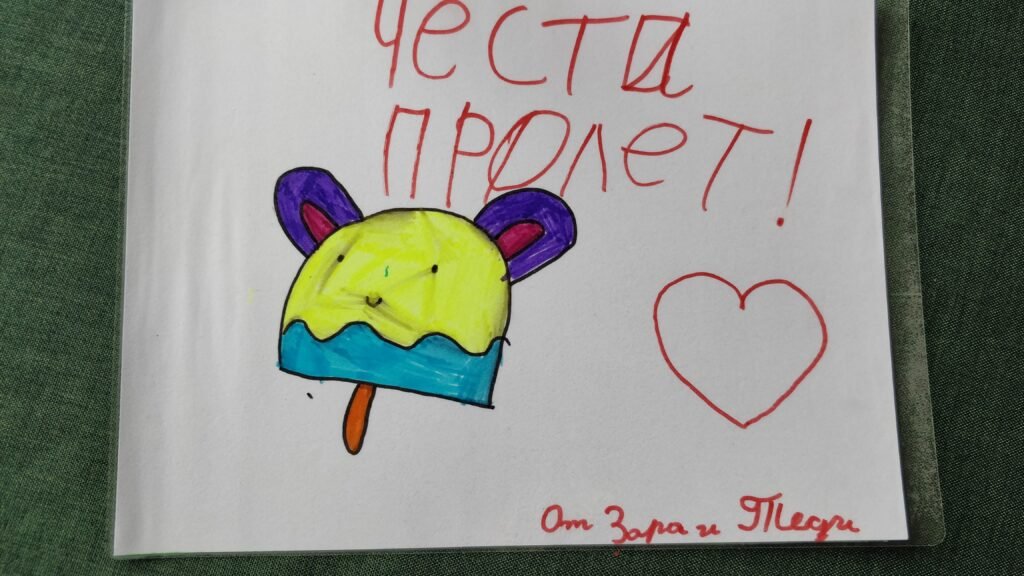 ЧЕСТИ
ПРОЛЕТ!
От Зара и Теди